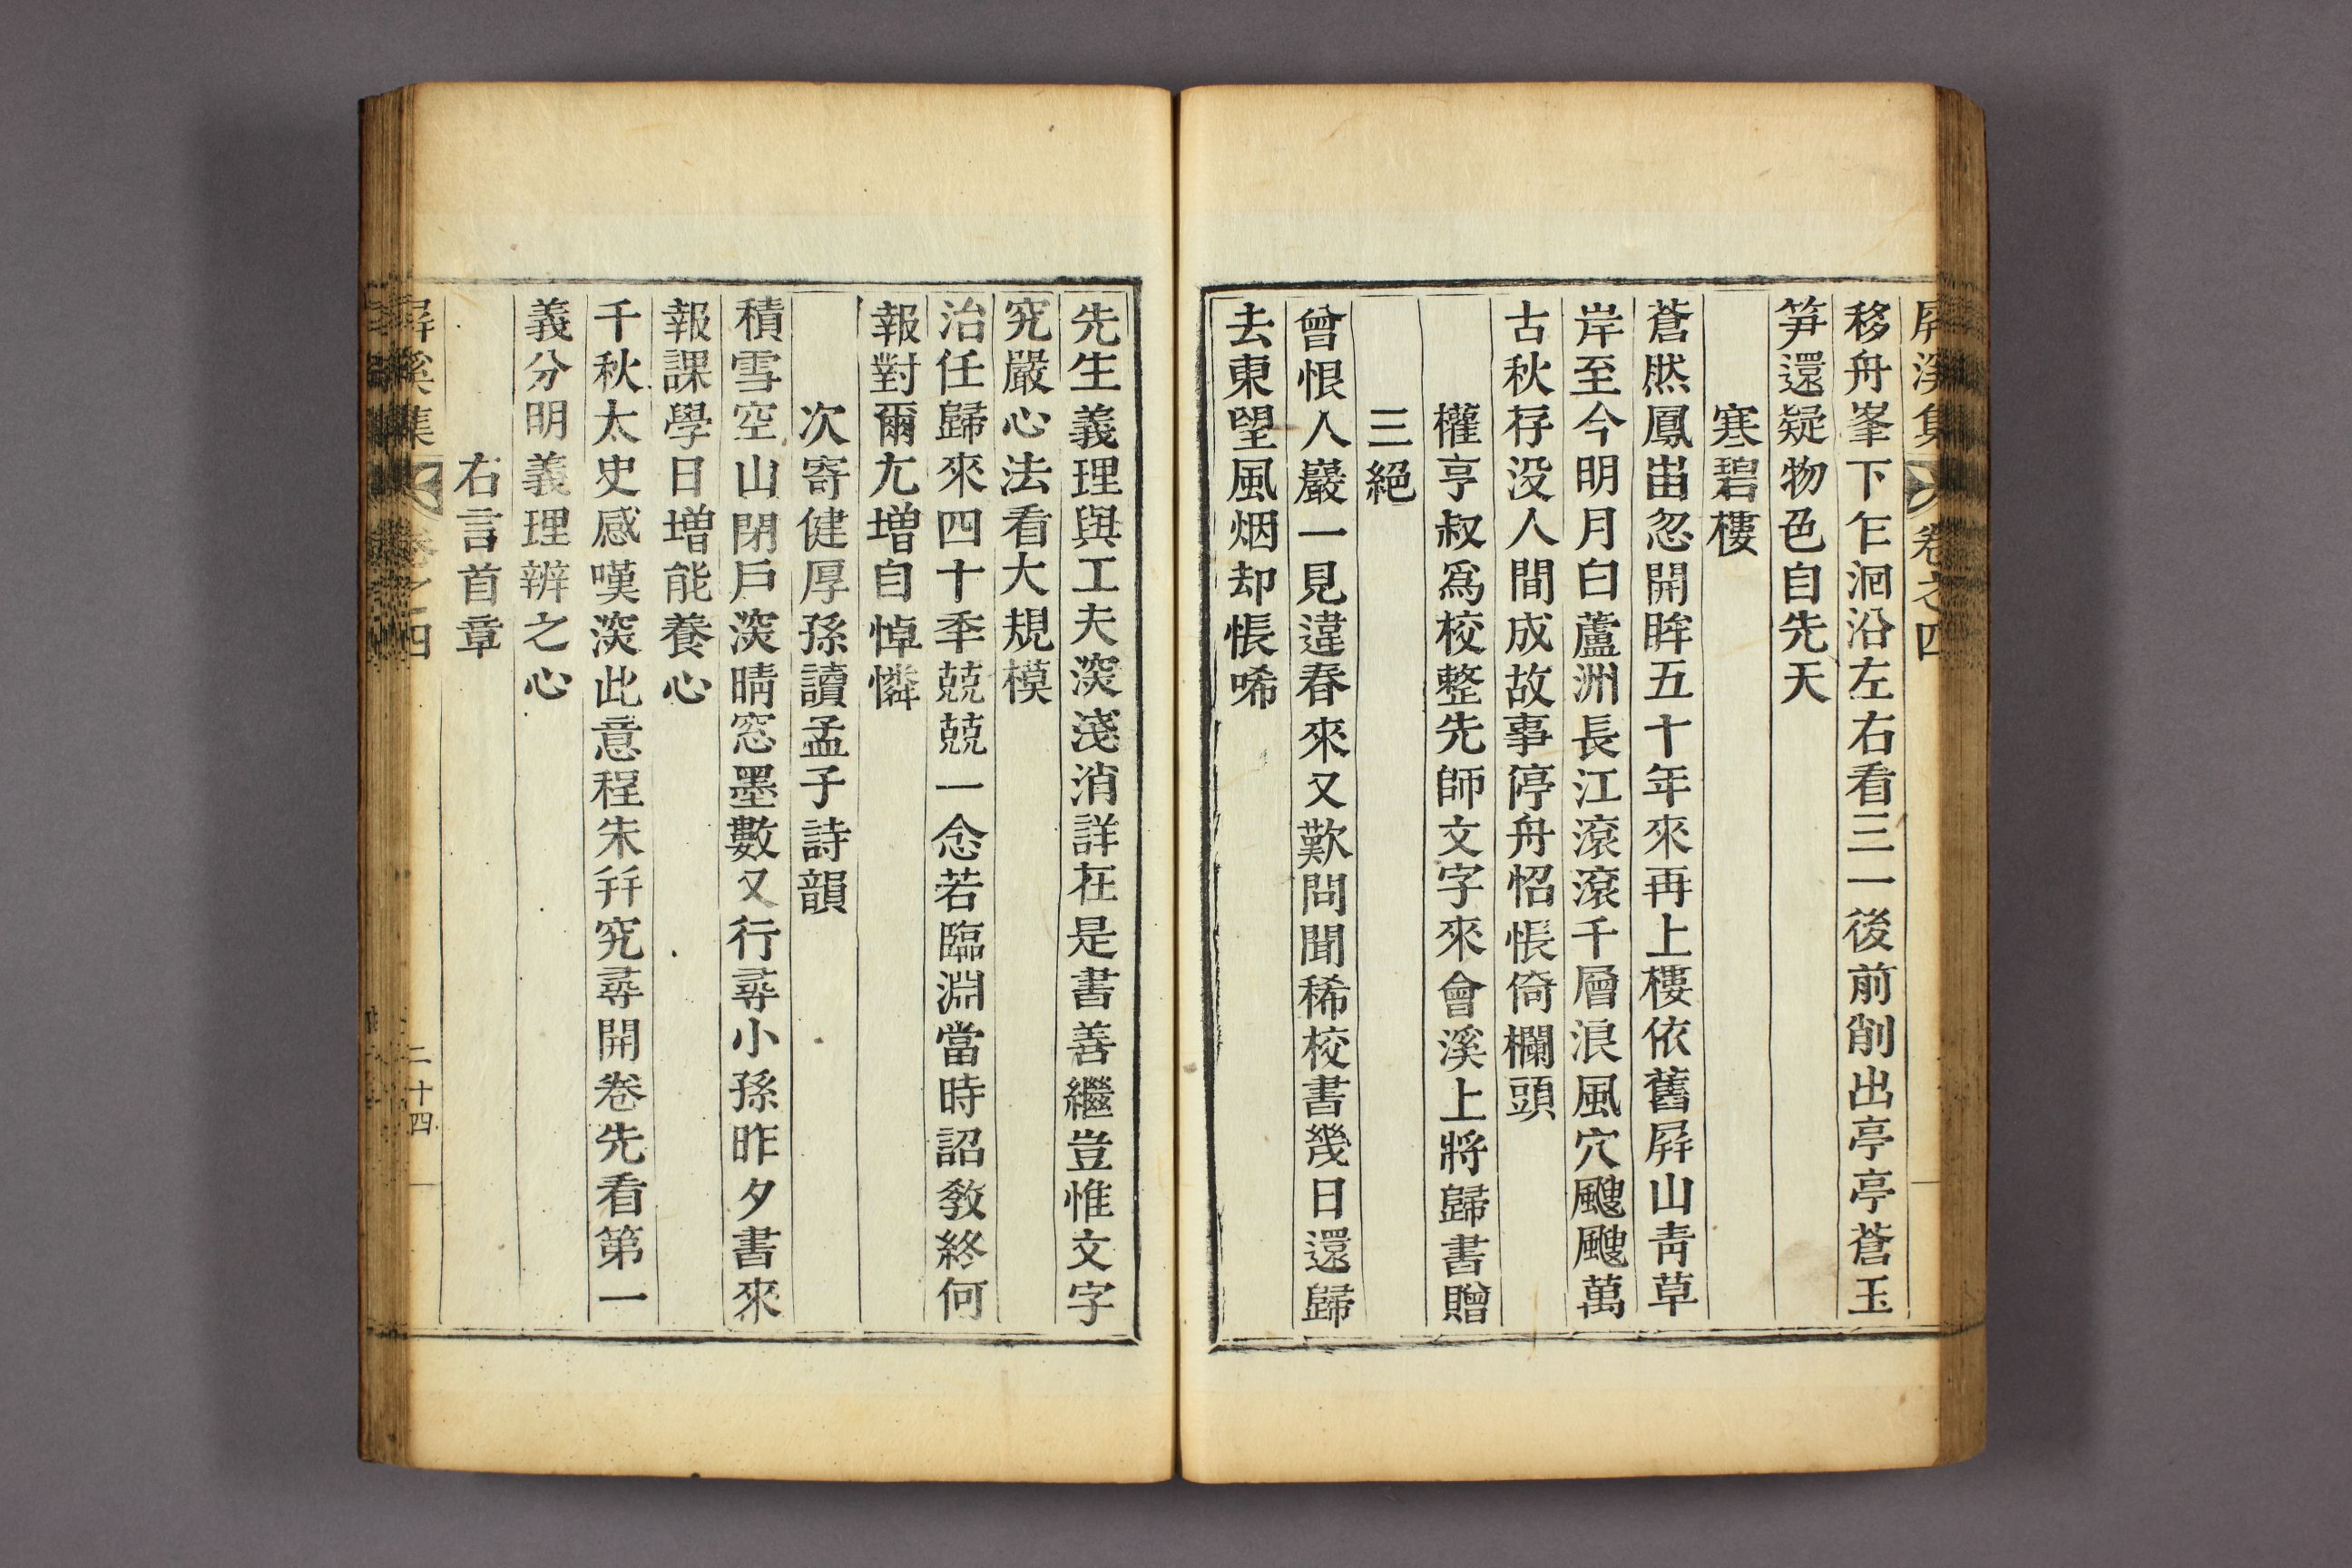 屛溪集 卷之四
移舟峯下乍洄沿左右看三一後前削出亭亭蒼玉
笋還疑物色自先天
寒碧樓
蒼然鳳出忽開眸五十年來再上樓依舊屛山靑草
岸至今明月白蘆洲長江滾滾千層浪風穴颼颼萬
古秋存没人間成故事停舟怊悵倚欄頭
權亨叔爲校整先師文字來會溪上將歸書贈
三絕
曾恨人巖一見違春來又歎問聞稀校書幾日還歸
去東望風烟却悵唏
先生義理與工夫深淺消詳在是書善繼豈惟文字
究嚴心法看大規模
治任歸來四十秊兢兢一念若臨淵當時詔敎終何
報對爾尢增自悼憐
次寄健厚孫讀孟子詩韻
積雪空山閉戶深晴窓墨數又行尋小孫昨夕書來
報課學日增能養心
千秋太史感嘆深此意程朱幷究尋開卷先看第一
義分明義理辨之心
右言首章
屛溪集 卷之四 二十四